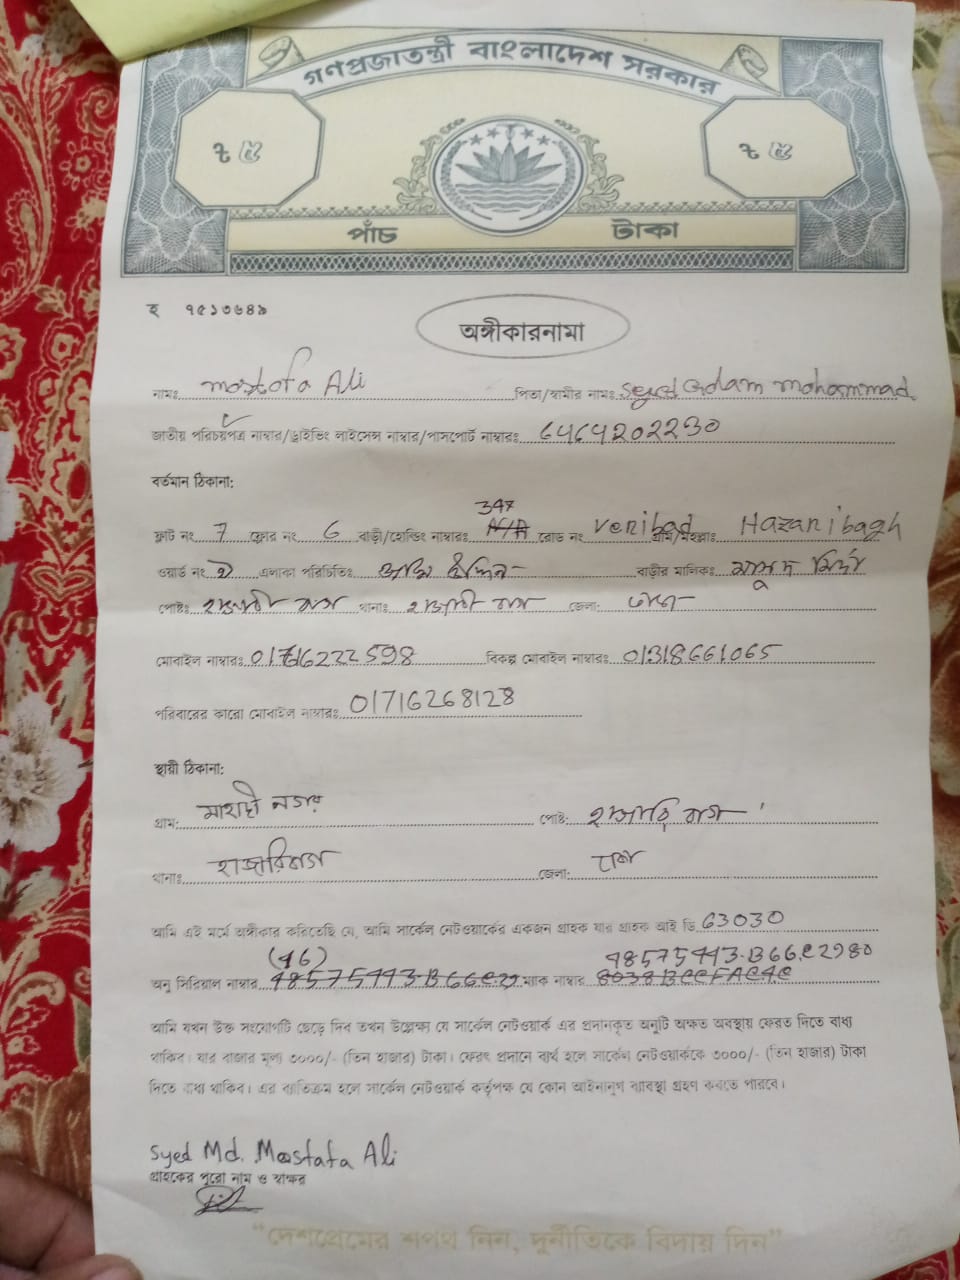 গণপ্রজাতন্ত্রী বাংলাদেশ সরকার
৳ ৫ ৳ ৫
পাঁচ টাকা
হ ৭৫১৩৬৪৯
অঙ্গীকারনামা
নামঃ Mostofa Ali পিতা/স্বামীর নামঃ Syed Golam Mohammad
জাতীয় পরিচয়পত্র নাম্বার/ড্রাইভিং লাইসেন্স নাম্বার/পাসপোর্ট নাম্বারঃ 6464202230
বর্তমান ঠিকানা:
347
ফ্লাট নং 7 ফ্লোর নং 6 বাড়ী/হোল্ডিং নাম্বারঃ রোড নং Veribad গ্রাম/মহল্লাঃ Hazaribagh
ওয়ার্ড নং এলাকা পরিচিতিঃ বাড়ীর মালিকঃ মাসুদ
পোষ্টঃ হাজারী বাগ থানাঃ হাজারী বাগ জেলা: ঢাকা
মোবাইল নাম্বারঃ 01716222598 বিকল্প মোবাইল নাম্বারঃ 01318661065
পরিবারের কারো মোবাইল নাম্বারঃ 01716268128
স্থায়ী ঠিকানা:
গ্রাম: পোষ্ট: হাজারি বাগ
থানাঃ হাজারিবাগ জেলা: ঢাকা
আমি এই মর্মে অঙ্গীকার করিতেছি যে, আমি সার্কেল নেটওয়ার্কের একজন গ্রাহক যার গ্রাহক আই ডি 63030
(16) 48575443.B66C2980
অনু সিরিয়াল নাম্বার 48575443.B66C29 ম্যাক নাম্বার
আমি যখন উক্ত সংযোগটি ছেড়ে দিব তখন উল্লেক্ষ্য যে সার্কেল নেটওয়ার্ক এর প্রদানকৃত অনুটি অক্ষত অবস্থায় ফেরত দিতে বাধ্য
থাকিব। যার বাজার মূল্য ৩০০০/- (তিন হাজার) টাকা। ফেরৎ প্রদানে ব্যর্থ হলে সার্কেল নেটওয়ার্ককে ৩০০০/- (তিন হাজার) টাকা
দিতে বাধ্য থাকিব। এর ব্যতিক্রম হলে সার্কেল নেটওয়ার্ক কর্তৃপক্ষ যে কোন আইনানুগ ব্যবস্থা গ্রহণ করতে পারবে।
Syed Md. Mostafa Ali
গ্রাহকের পুরো নাম ও স্বাক্ষর
"দেশপ্রেমের শপথ নিন, দুর্নীতিকে বিদায় দিন"